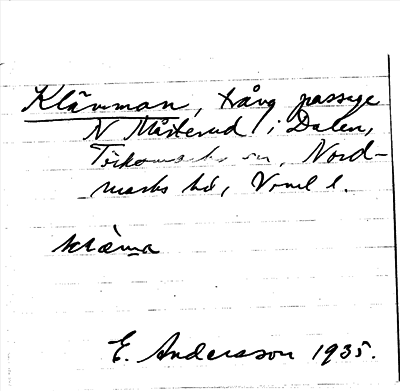 Klämman, trång passage
N Mårterud i Dalen,
Töcksmarks sn, Nord-
marks hd, Vrml l.
klæma
E. Andersson 1935.